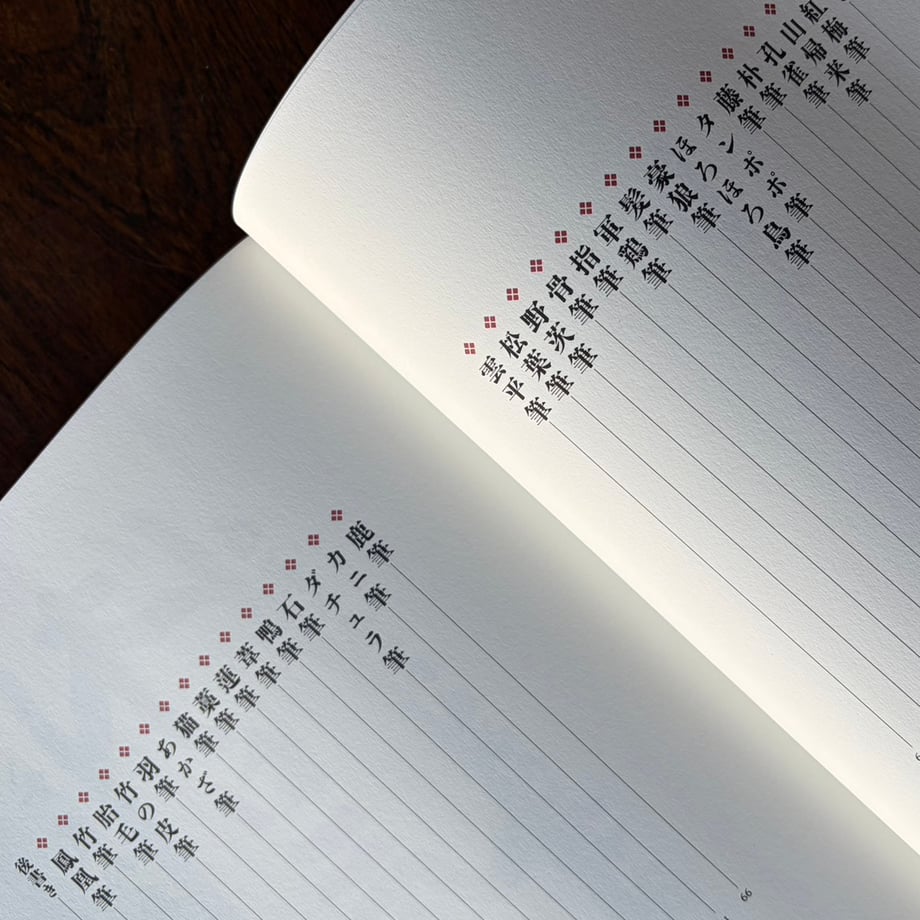 紅梅筆
山帰来筆
孔雀筆
朴筆
藤筆
タンポポ筆
ほろほろ鳥筆
豪狼筆
髪筆
軍鶏筆
指筆
骨筆
野茨筆
松葉筆
雲平筆
鹿筆 66
カニ筆
ダチュラ筆
石筆
鴨筆
葦筆
蓮筆
藁筆
猫筆
あかざ筆
羽筆
竹の皮筆
胎毛筆
竹筆
鳳凰筆
後書き